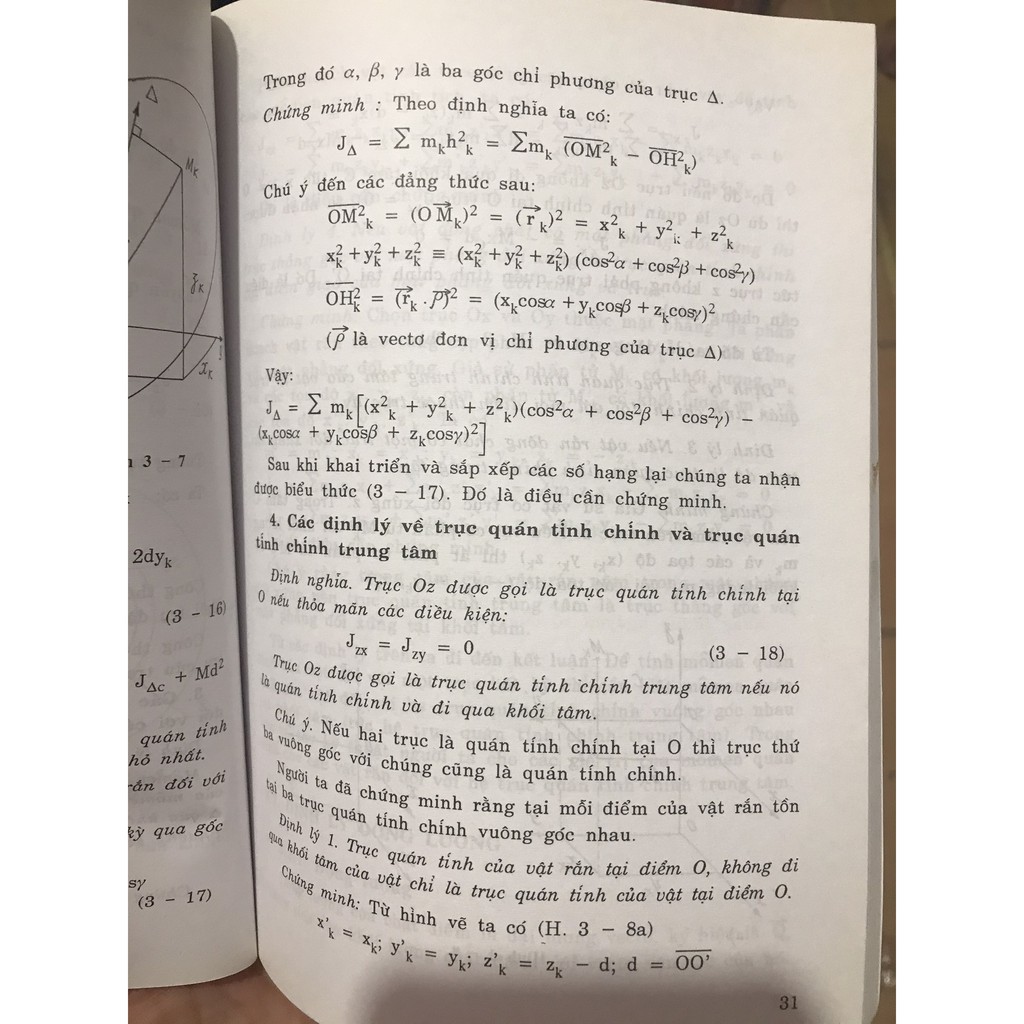 Δ
Mk
ʒk
xk
h 3 – 7
2dyk
(3 – 16)
JΔc + Md²
quán tính
hỏ nhất.
rắn đối với
kỳ qua gốc
sγ
(3 – 17)
Trong đó α, β, γ là ba góc chỉ phương của trục Δ.
Chứng minh : Theo định nghĩa ta có:
JΔ = Σ mkh²k = Σmk (OM²k – OH²k)
Chú ý đến các đẳng thức sau:
OM²k = (OMk)² = (rk)² = x²k + y²k + z²k
x²k + y²k + z²k ≡ (x²k + y²k + z²k) (cos²α + cos²β + cos²γ)
OH²k = (rk . ρ)² = (xkcosα + ykcosβ + zkcosγ)²
(ρ là vectơ đơn vị chỉ phương của trục Δ)
Vậy:
JΔ = Σ mk[(x²k + y²k + z²k)(cos²α + cos²β + cos²γ) –
(xkcosα + ykcosβ + zkcosγ)²]
Sau khi khai triển và sắp xếp các số hạng lại chúng ta nhận
được biểu thức (3 – 17). Đó là điều cần chứng minh.
4. Các định lý về trục quán tính chính và trục quán
tính chính trung tâm
Định nghĩa. Trục Oz được gọi là trục quán tính chính tại
O nếu thỏa mãn các điều kiện:
Jzx = Jzy = 0 (3 – 18)
Trục Oz được gọi là trục quán tính chính trung tâm nếu nó
là quán tính chính và đi qua khối tâm.
Chú ý. Nếu hai trục là quán tính chính tại O thì trục thứ
ba vuông góc với chúng cũng là quán tính chính.
Người ta đã chứng minh rằng tại mỗi điểm của vật rắn tồn
tại ba trục quán tính chính vuông góc nhau.
Định lý 1. Trục quán tính của vật rắn tại điểm O, không đi
qua khối tâm của vật chỉ là trục quán tính của vật tại điểm O.
Chứng minh: Từ hình vẽ ta có (H. 3 – 8a)
x'k = xk; y'k = yk; z'k = zk – d; d = OO'
31